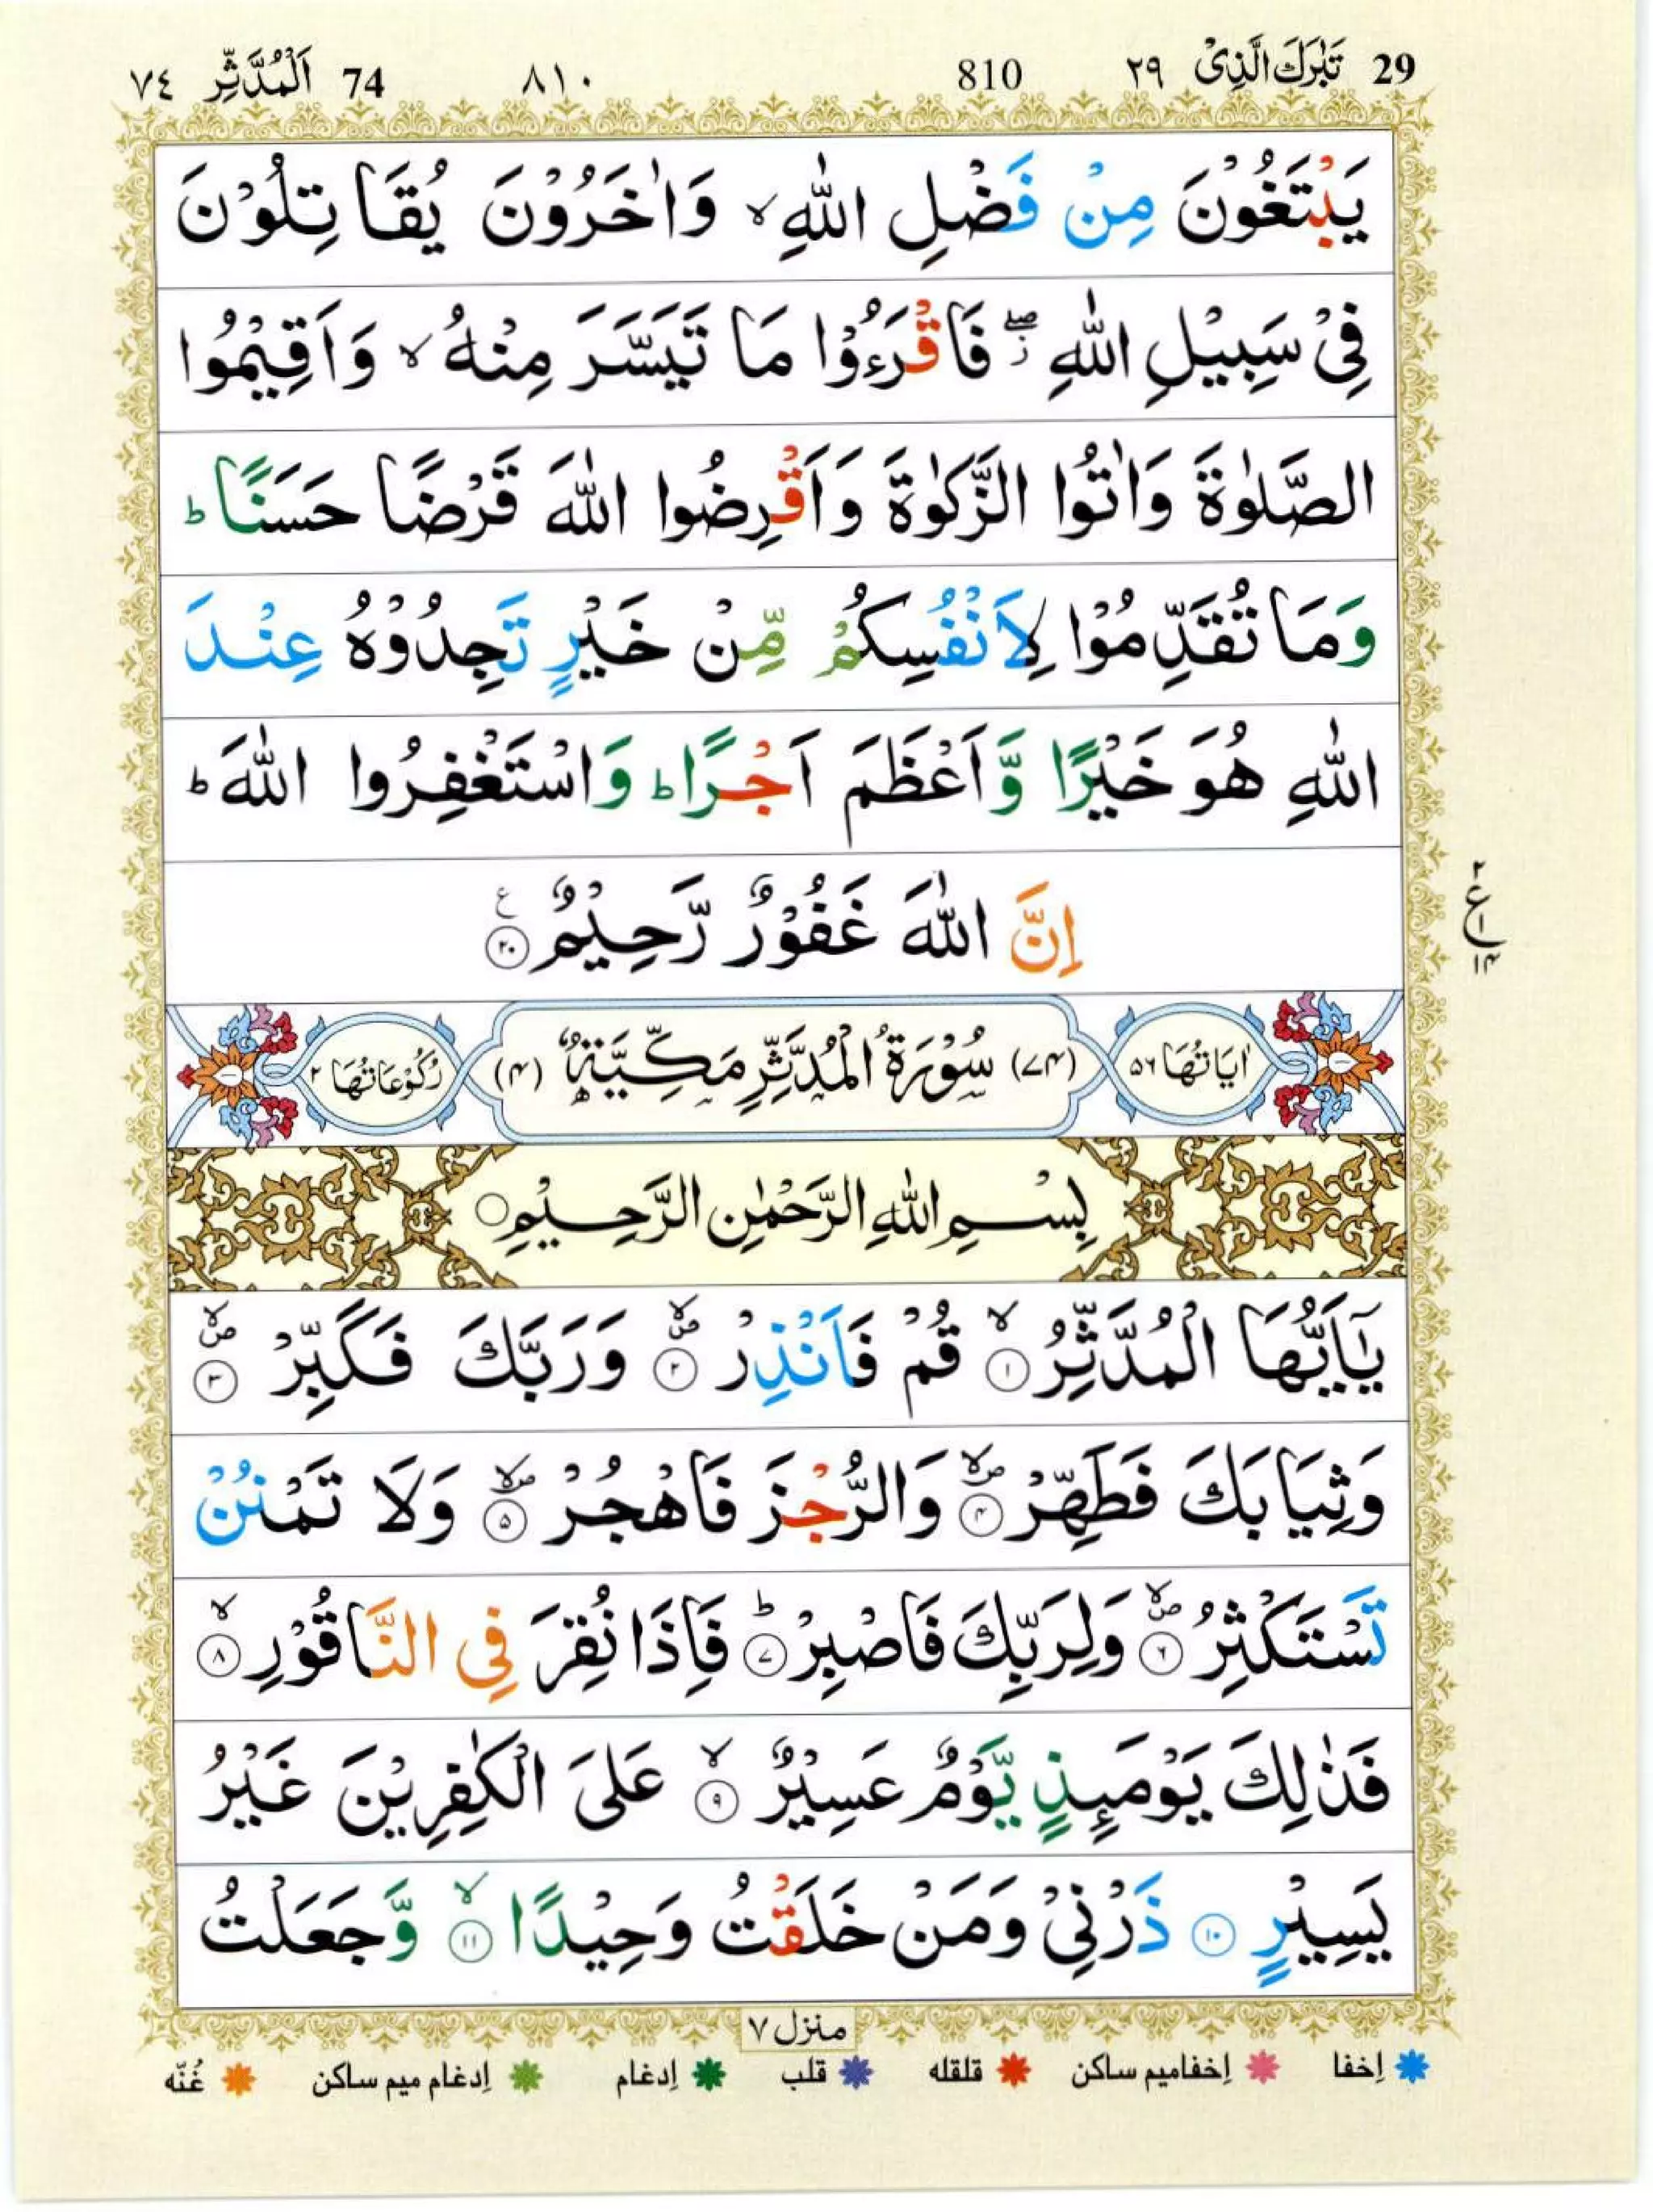 29 تَبٰرَكَ الَّذِیْ ٢٩ 810 ٨١٠ 74 اَلْمُدَّثِّر ٧٤
يَبْتَغُوْنَ مِنْ فَضْلِ اللّٰهِ ۙ وَاٰخَرُوْنَ يُقَاتِلُوْنَ
فِیْ سَبِيْلِ اللّٰهِ ۖ ز فَاقْرَءُوْا مَا تَيَسَّرَ مِنْهُ ۙ وَاَقِيْمُوا
الصَّلٰوةَ وَاٰتُوا الزَّكٰوةَ وَاَقْرِضُوا اللّٰهَ قَرْضًا حَسَنًا ؕ
وَمَا تُقَدِّمُوْا لِاَنْفُسِكُمْ مِّنْ خَيْرٍ تَجِدُوْهُ عِنْدَ
اللّٰهِ هُوَ خَيْرًا وَّاَعْظَمَ اَجْرًا ؕ وَاسْتَغْفِرُوا اللّٰهَ ؕ
اِنَّ اللّٰهَ غَفُوْرٌ رَّحِيْمٌ ۧ ﴿۲۰﴾
۲ ع ۱ ۱۴
اٰيَاتُهَا ۵۶ (۷۴) سُوْرَةُ الْمُدَّثِّرِ مَكِّيَّةٌ (۴) رُكُوْعَاتُهَا ۲
بِسْمِ اللّٰهِ الرَّحْمٰنِ الرَّحِيْمِ
يٰۤاَيُّهَا الْمُدَّثِّرُ ۙ ﴿۱﴾ قُمْ فَاَنْذِرْ ۪ۙ ﴿۲﴾ وَرَبَّكَ فَكَبِّرْ ۪ۙ ﴿۳﴾
وَثِيَابَكَ فَطَهِّرْ ۪ۙ ﴿۴﴾ وَالرُّجْزَ فَاهْجُرْ ۪ۙ ﴿۵﴾ وَلَا تَمْنُنْ
تَسْتَكْثِرُ ۪ۙ ﴿۶﴾ وَلِرَبِّكَ فَاصْبِرْ ؕ ﴿۷﴾ فَاِذَا نُقِرَ فِی النَّاقُوْرِ ۙ ﴿۸﴾
فَذٰلِكَ يَوْمَىِٕذٍ يَّوْمٌ عَسِيْرٌ ۙ ﴿۹﴾ عَلَی الْكٰفِرِيْنَ غَيْرُ
يَسِيْرٍ ﴿۱۰﴾ ذَرْنِیْ وَمَنْ خَلَقْتُ وَحِيْدًا ۙ ﴿۱۱﴾ وَّجَعَلْتُ
منزل ٧
إخفا إخفا ميم ساكن قلقله قلب إدغام إدغام ميم ساكن غُنّه